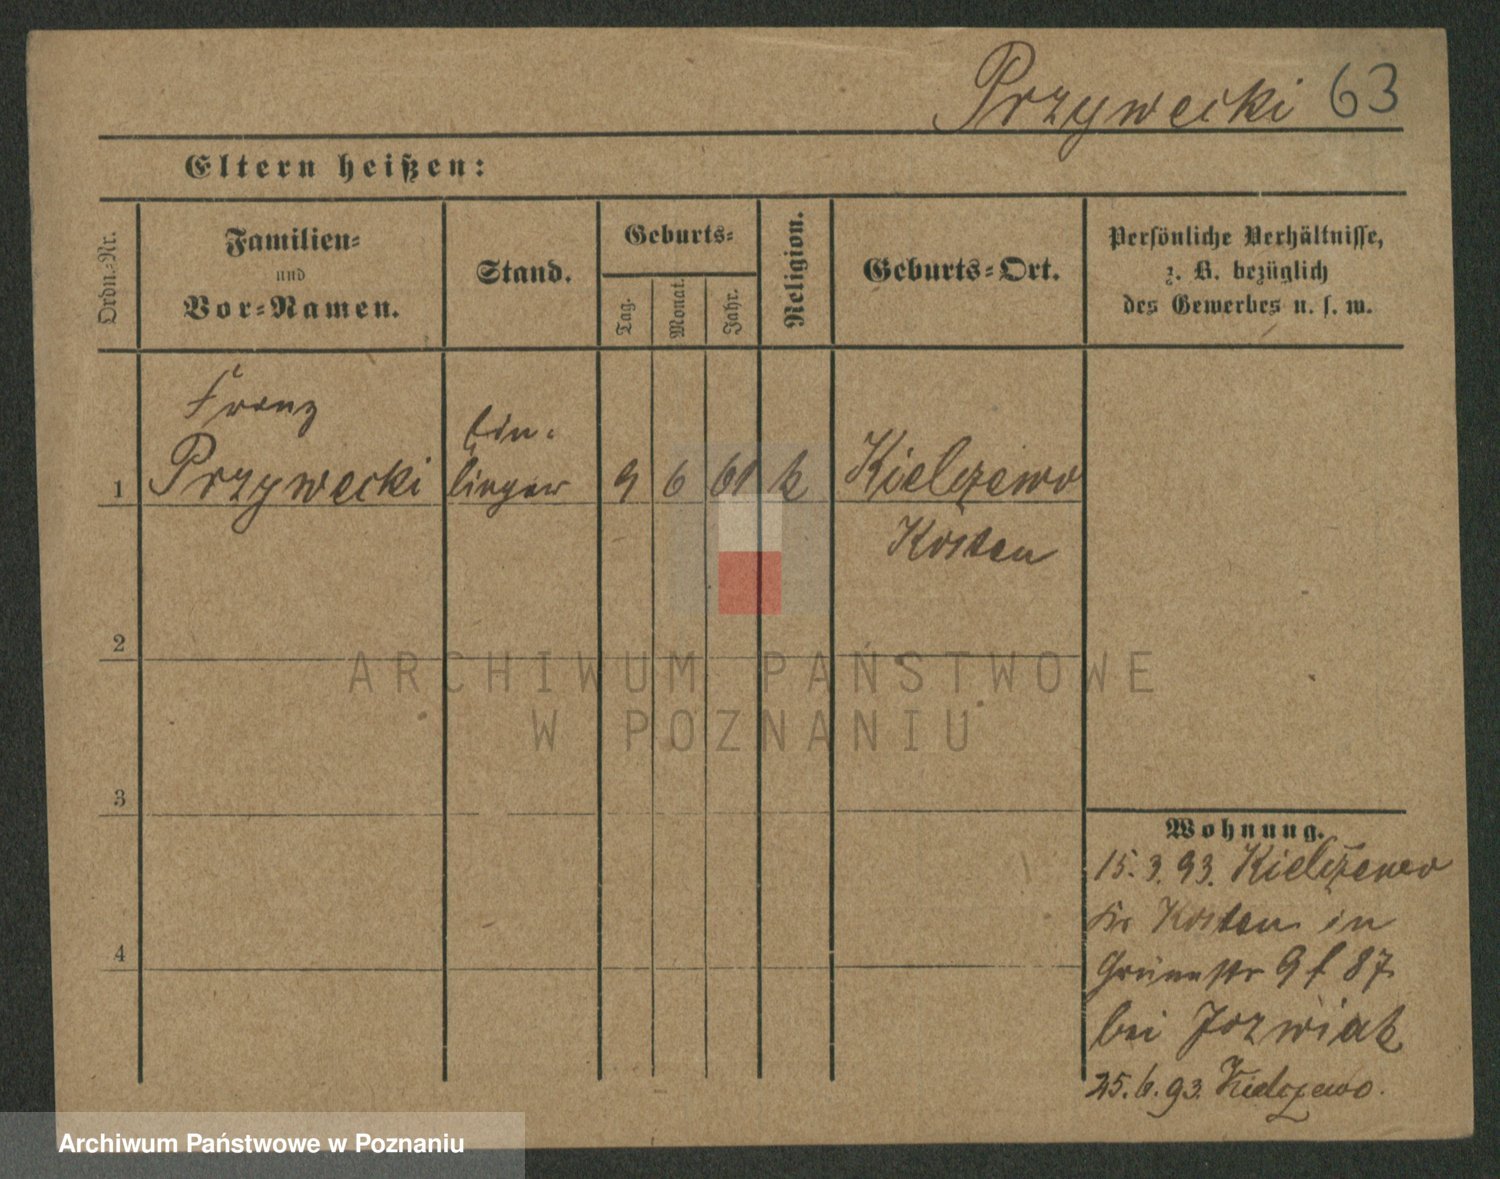 Przywecki 63
Eltern heißen:
Ordn.-Nr.
Familien-
und
Vor-Namen.
Stand.
Geburts-
Tag.
Monat.
Jahr.
Religion.
Geburts-Ort.
Persönliche Verhältnisse,
z. B. bezüglich
des Gewerbes u. s. w.
Franz
Ein-
1 Przywecki lieger 9 6 61 k Kielczewo
Kosten
2
ARCHIWUM PAŃSTWOWE
W POZNANIU
3
Wohnung.
15.3.93. Kielczewo
Kr Kosten in
4
Grünestr 9 f 87
bei Jozwiak
25.6.93. Kielczewo.
Archiwum Państwowe w Poznaniu